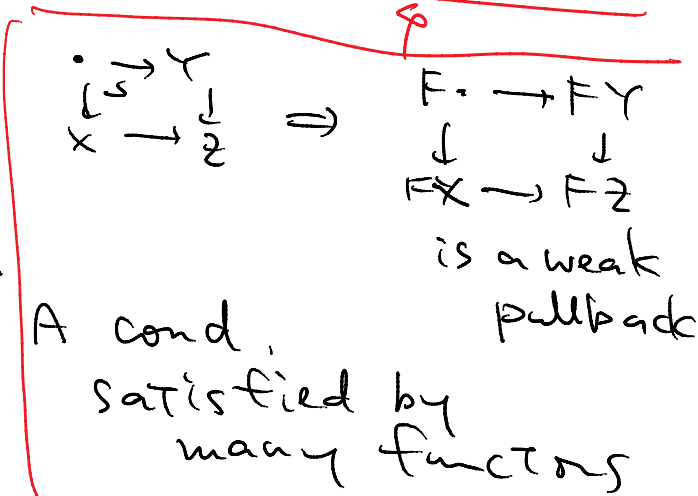 · → Y
↓ ↓
X → Z
⇒
F· → FY
↓ ↓
FX → FZ
is a weak
pullback
A cond.
satisfied by
many functors